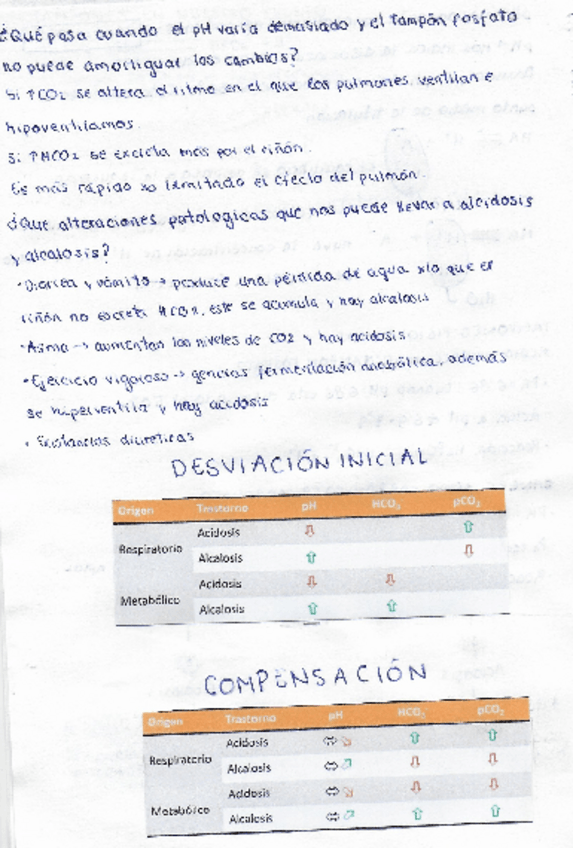 ¿Qué pasa cuando el pH varía demasiado y el tampón fosfato
no puede amortiguar los cambios?
Si ↑CO₂ se altera el ritmo en el que los pulmones ventilan e
hipoventilamos.
Si ↑HCO₃ se excreta más por el riñón.
Es más rápido limitado el efecto del pulmón.
¿Qué alteraciones patologicas que nos puede llevar a alcidosis
y alcalosis?
· Diarrea y vómito → produce una pérdida de agua x lo que el
riñón no excreta HCO₃, este se acumula y hay alcalosis
· Asma → aumentan los niveles de CO₂ y hay acidosis
· Ejercicio vigoroso → generas fermentación anabólica, además
se hiperventila y hay acidosis
· Sustancias diureticas
DESVIACIÓN INICIAL
Origen Trastorno pH HCO₃ pCO₂
Respiratorio Acidosis ⇩ ⇧
Alcalosis ⇧ ⇩
Metabólico Acidosis ⇩ ⇩
Alcalosis ⇧ ⇧
COMPENSACIÓN
Origen Trastorno pH HCO₃ pCO₂
Respiratorio Acidosis ⇔ ⇘ ⇧ ⇧
Alcalosis ⇔ ⇗ ⇩ ⇩
Metabólico Acidosis ⇔ ⇘ ⇩ ⇩
Alcalosis ⇔ ⇗ ⇧ ⇧